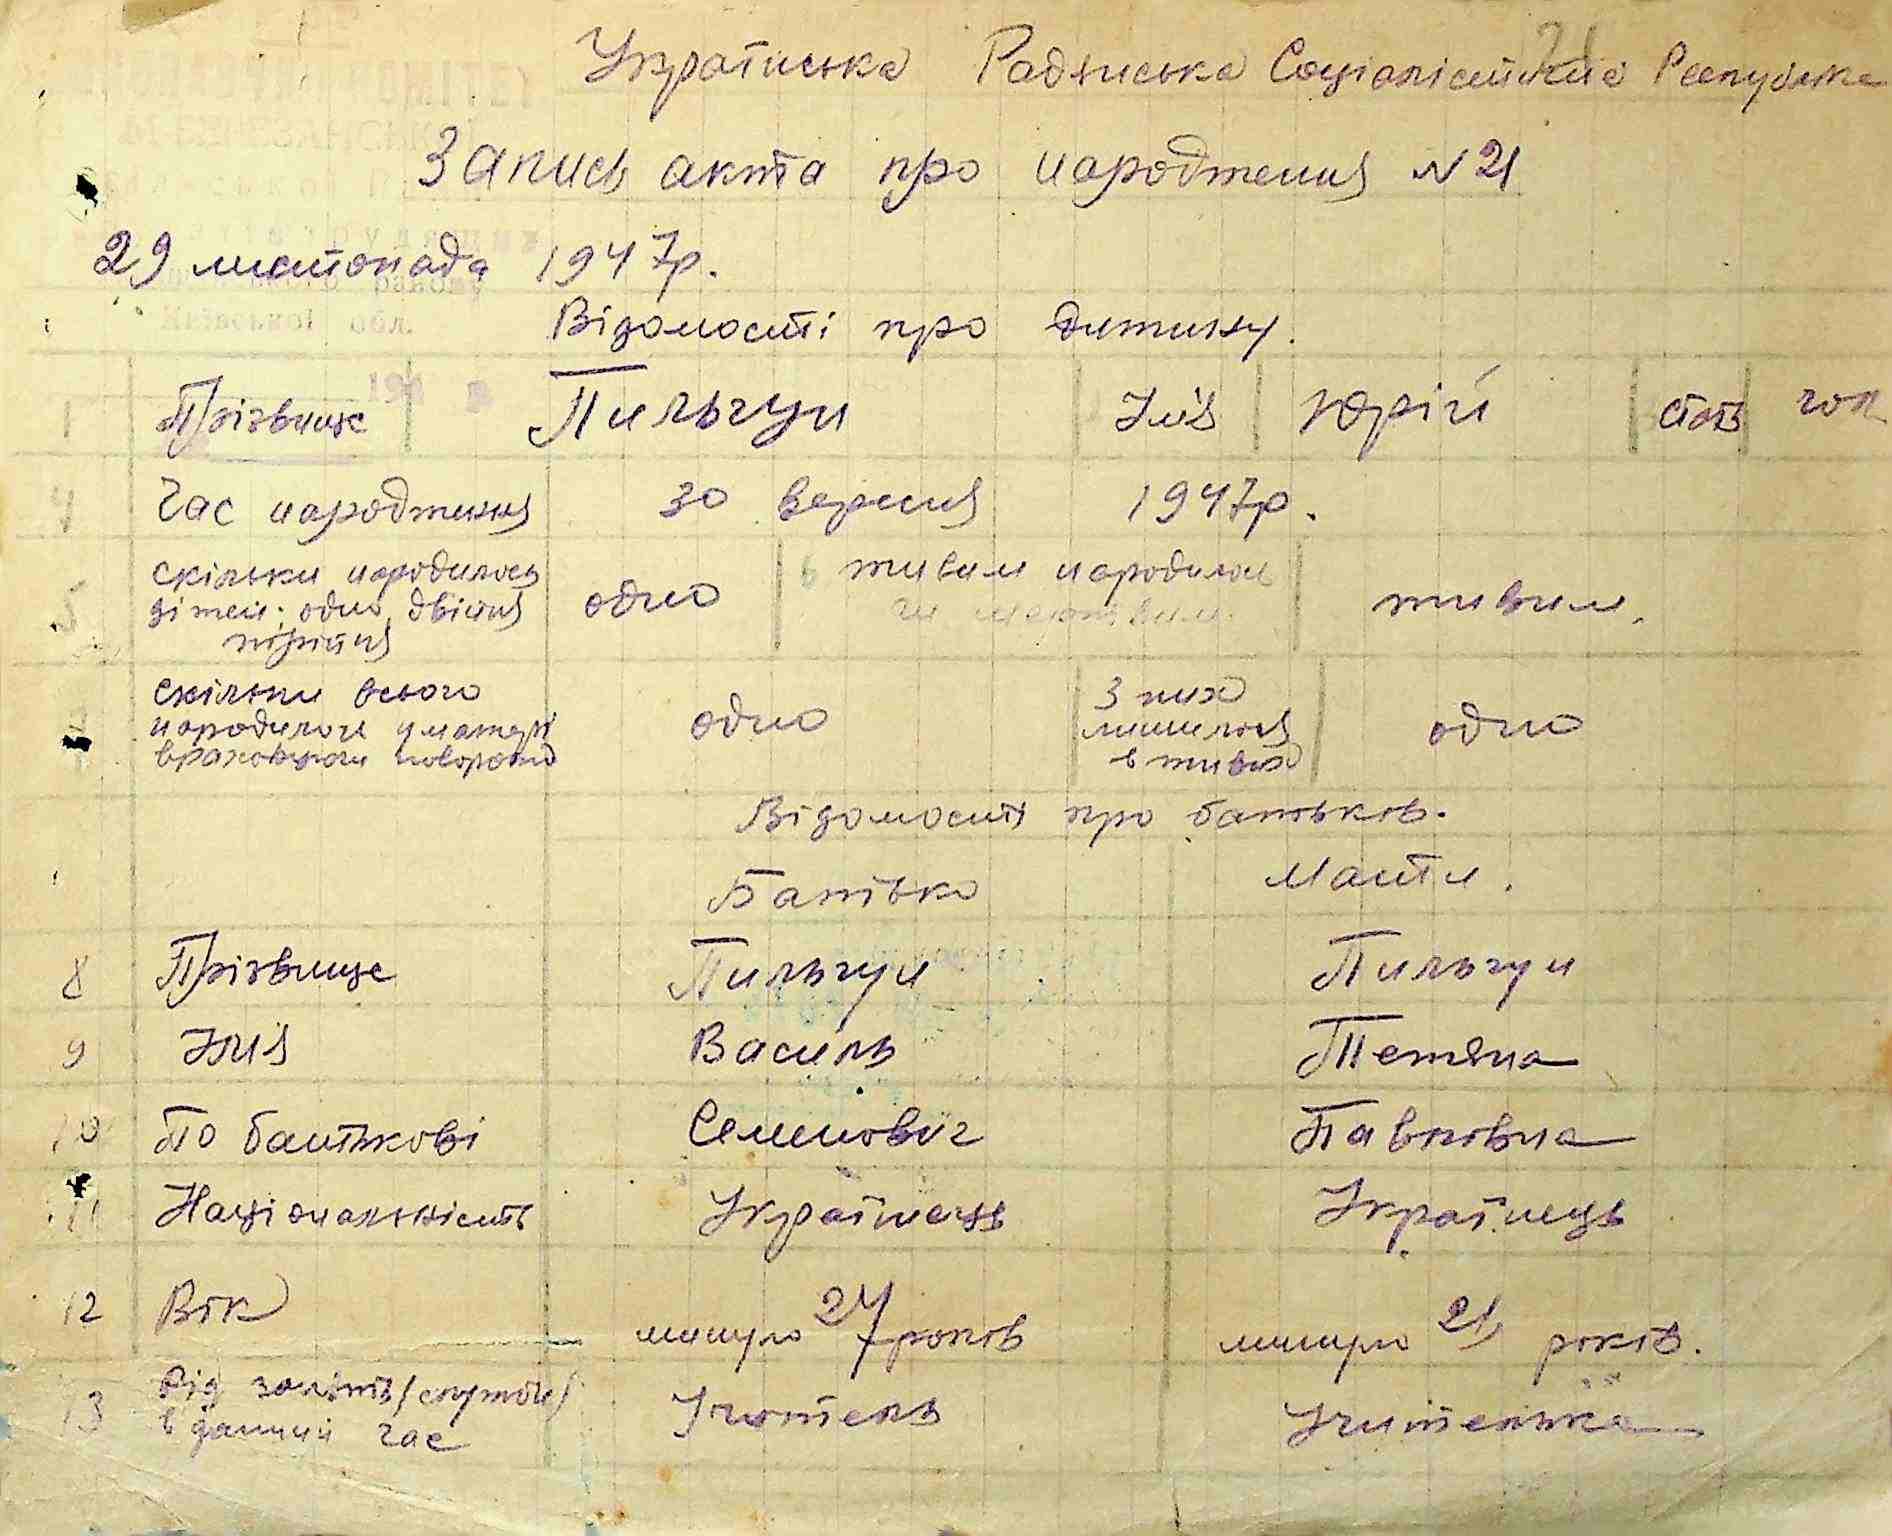 21
Українська Радянська Соціалістична Республіка
Запись акта про народження N 21
29 листопада 1947р.
Відомості про дитину.
1 Прізвище Пильгун Імя Юрій стать чол
4 Час народження 30 вересня 1947р.
5 скільки народилось дітей: одно, двійня трійня одно 6 живим народилось чи мертвим живим.
скільки всього народилося у матері враховуючи одно З них лишилося в живих одно
Відомості про батьков.
Батько Мати.
8 Прізвище Пильгун Пильгун
9 Імя Василь Тетяна
10 По батькові Семенович Павловна
11 Національність Українець Українець
12 Вік минуло 27 років минуло 21 років.
13 Рід занять (служби) в данний час Учитель Учителька